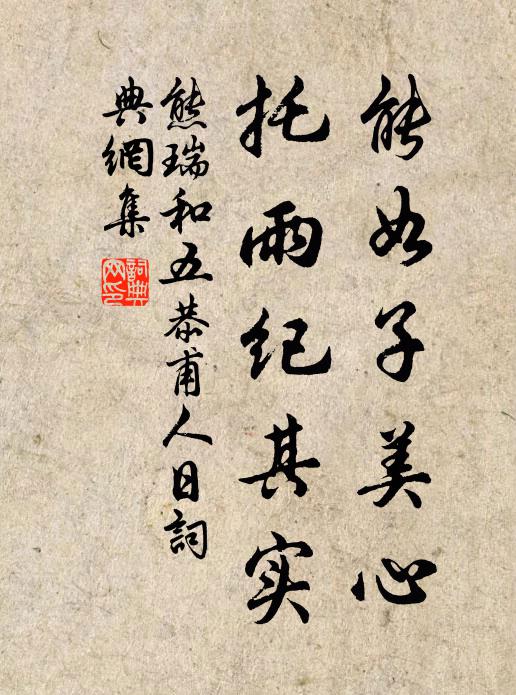 能如子美心
托雨纪其实
熊瑞和五恭甫人日詞
典網集
詞典
网印